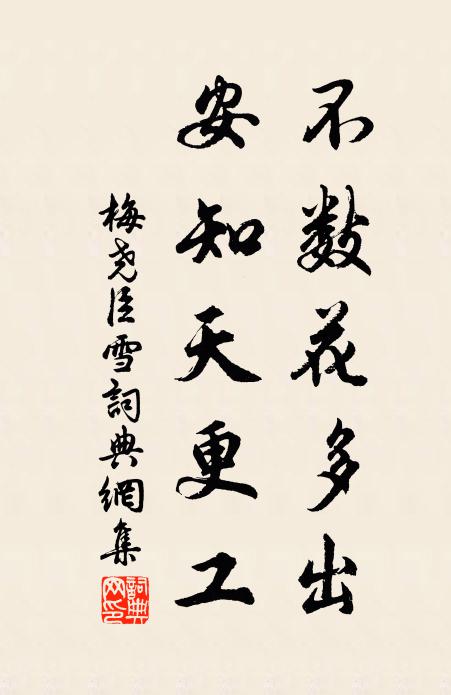 不数花多出
安知天更工
梅尧臣雪詞典網集
詞典网印